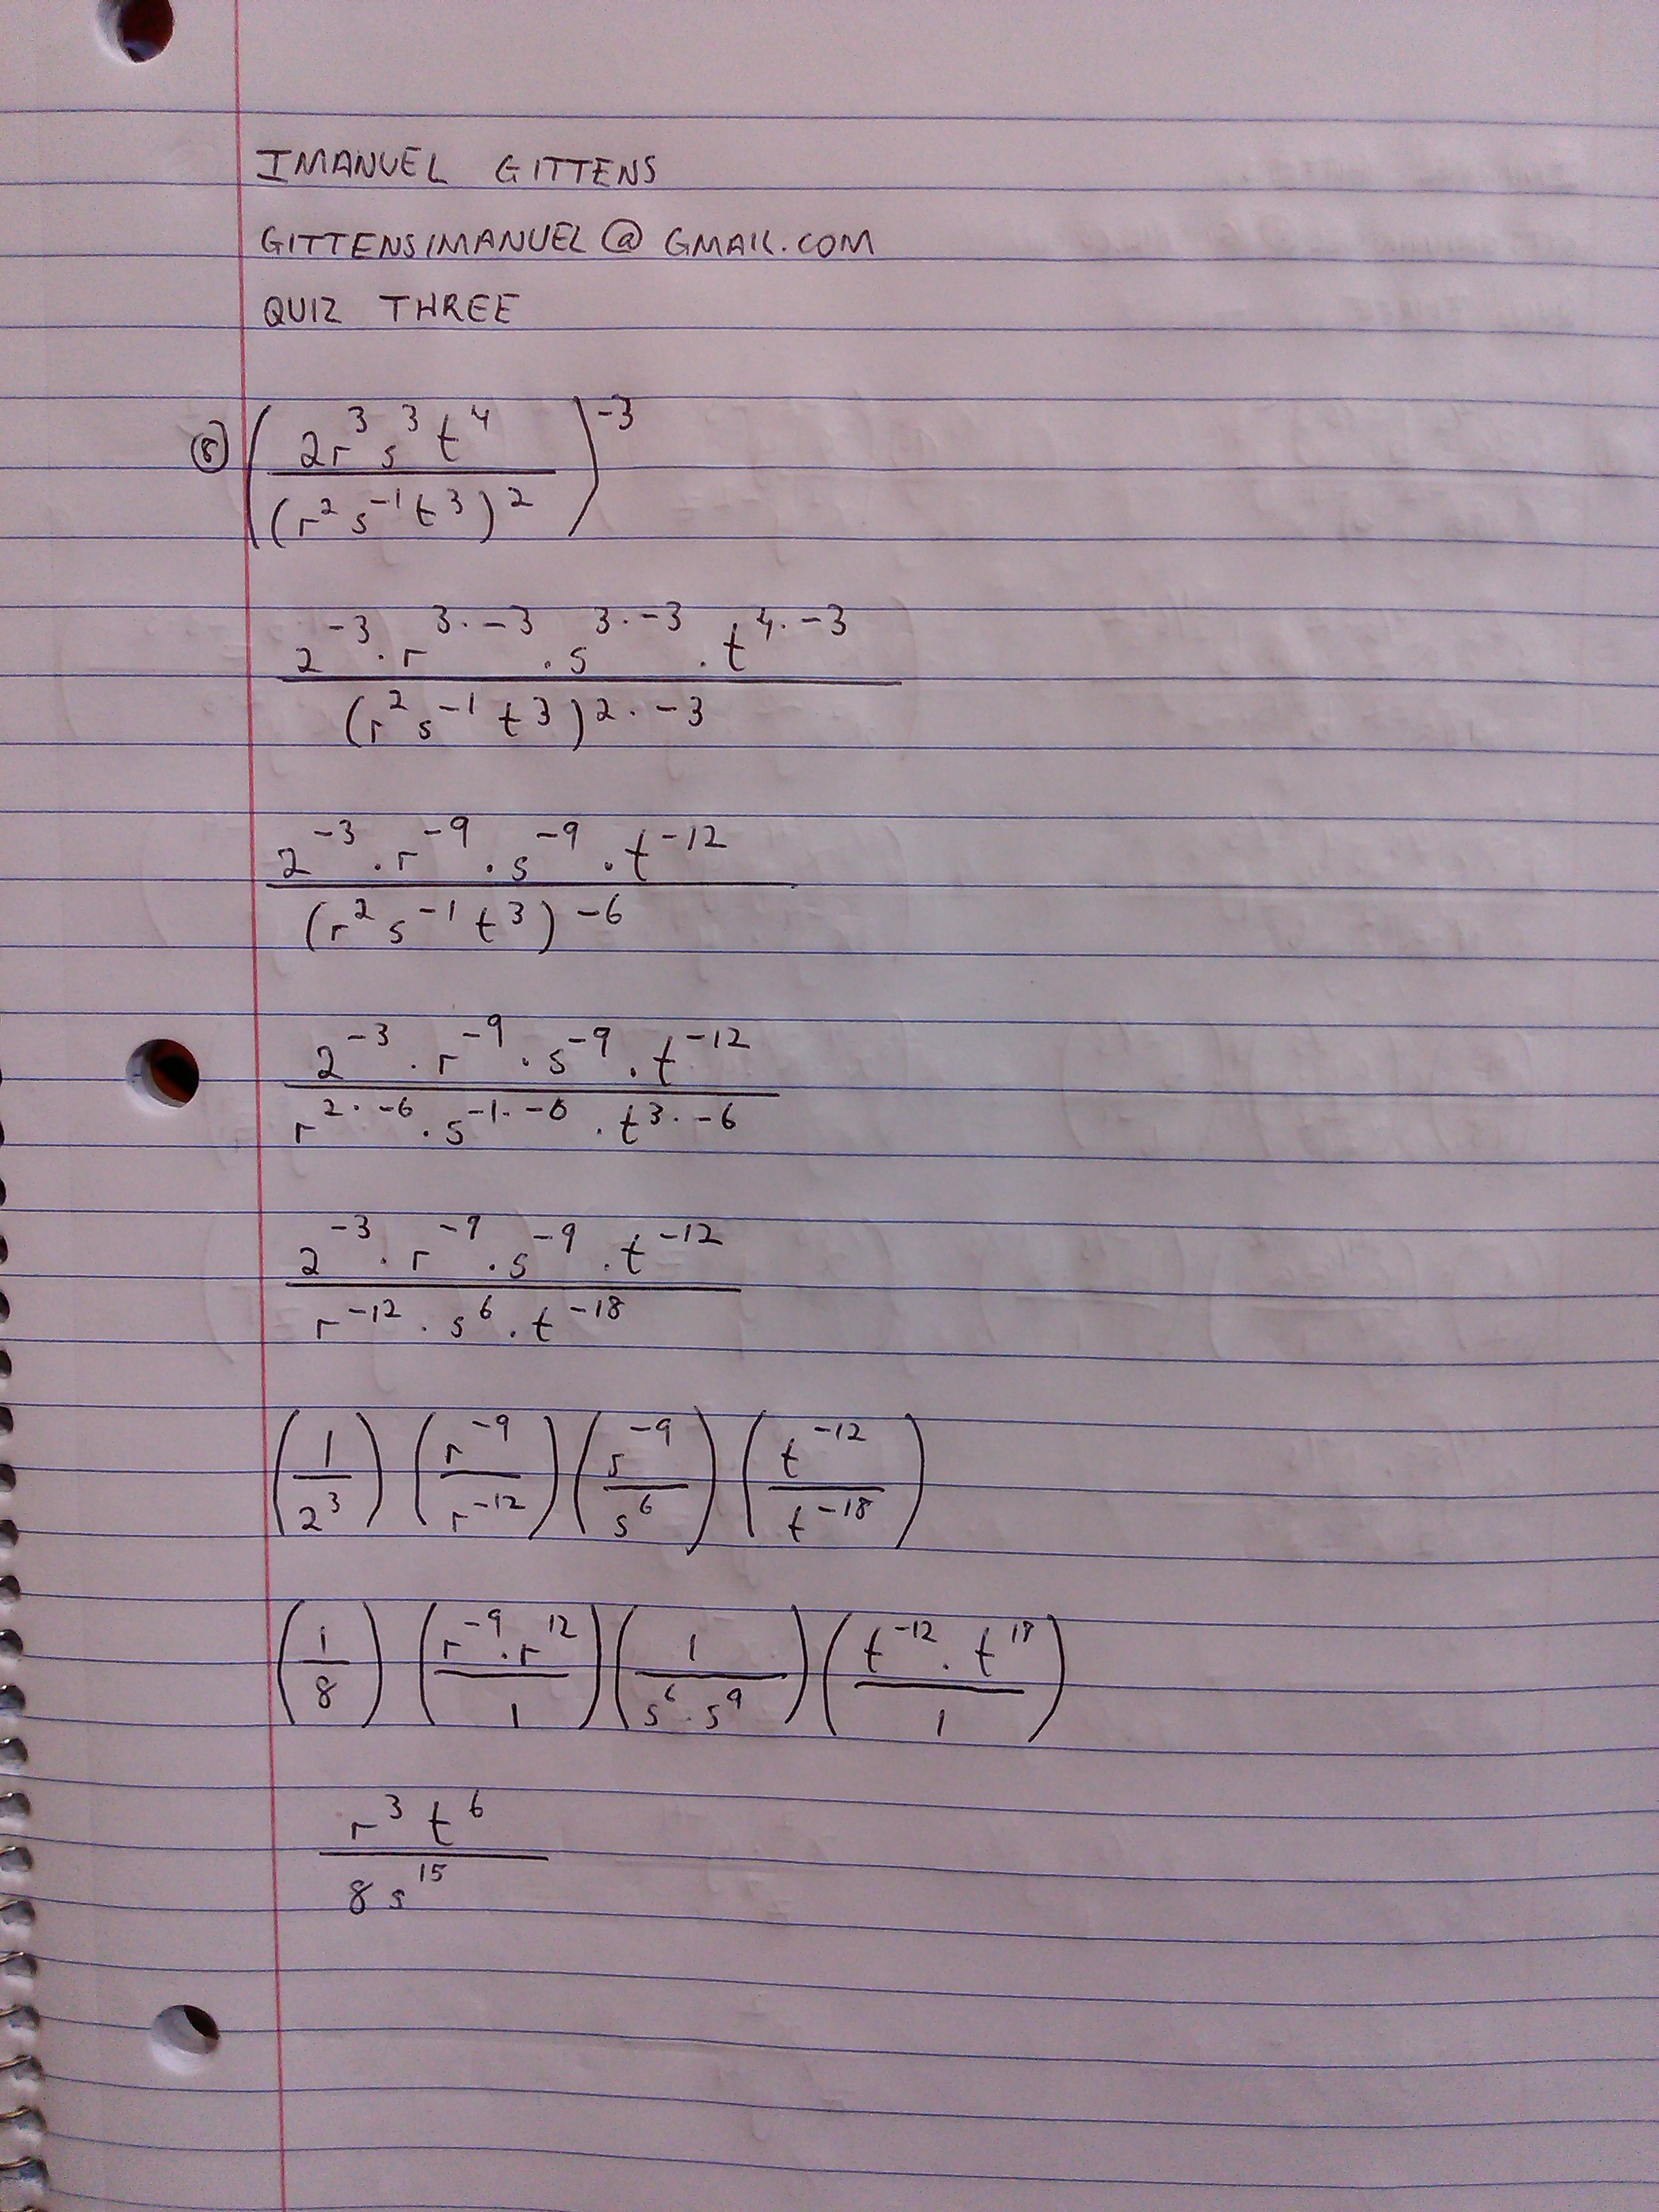 IMANUEL GITTENS
GITTENSIMANUEL@GMAIL.COM
QUIZ THREE
⑧ (2r³s³t⁴ / (r²s⁻¹t³)²)⁻³
2⁻³·r³·⁻³·s³·⁻³·t⁴·⁻³ / (r²s⁻¹t³)²·⁻³
2⁻³·r⁻⁹·s⁻⁹·t⁻¹² / (r²s⁻¹t³)⁻⁶
2⁻³·r⁻⁹·s⁻⁹·t⁻¹² / r²·⁻⁶·s⁻¹·⁻⁶·t³·⁻⁶
2⁻³·r⁻⁹·s⁻⁹·t⁻¹² / r⁻¹²·s⁶·t⁻¹⁸
(1/2³) (r⁻⁹/r⁻¹²) (s⁻⁹/s⁶) (t⁻¹²/t⁻¹⁸)
(1/8) (r⁻⁹·r¹²/1) (1/s⁶·s⁹) (t⁻¹²·t¹⁸/1)
r³t⁶ / 8s¹⁵